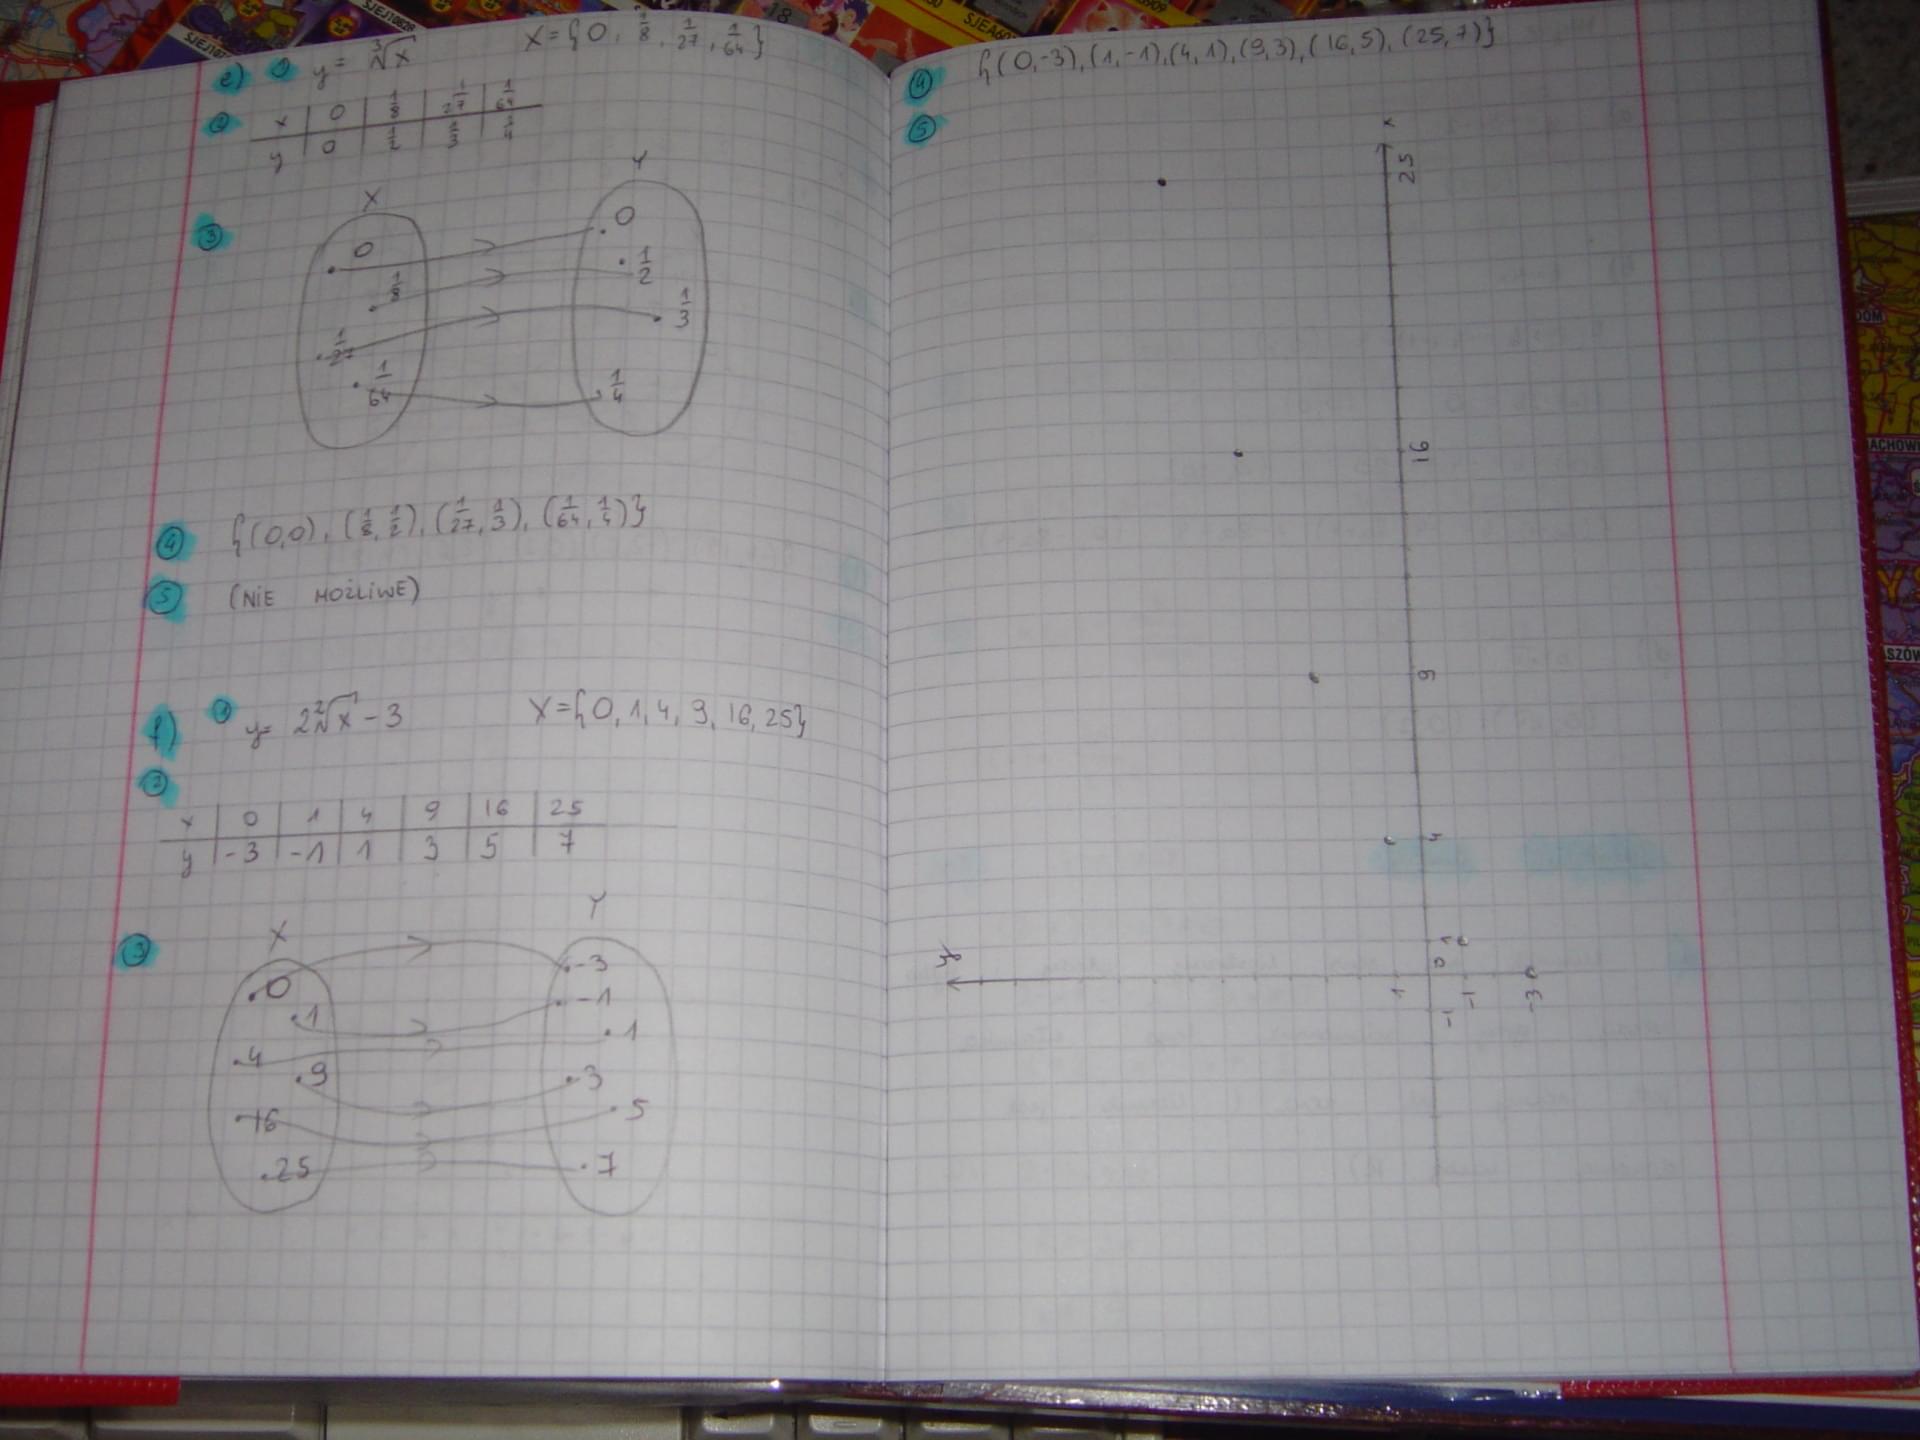 e) 1 y = ∛x X={0, 1/8, 1/27, 1/64}
2 x | 0 | 1/8 | 1/27 | 1/64
y | 0 | 1/2 | 1/3 | 1/4
3 X Y
0 0
1/8 1/2
1/27 1/3
1/64 1/4
4 {(0,0), (1/8, 1/2), (1/27, 1/3), (1/64, 1/4)}
5 (NIE MOŻLIWE)
f) 1 y = 2²√x - 3 X={0, 1, 4, 9, 16, 25}
2
x | 0 | 1 | 4 | 9 | 16 | 25
y | -3 | -1 | 1 | 3 | 5 | 7
3 X Y
0 -3
1 -1
4 1
9 3
16 5
25 7
4 {(0,-3), (1,-1), (4,1), (9,3), (16,5), (25,7)}
5
x
25
16
9
4
1
y
0
1 -1 -3
-1
SJEJ10628
ACHOW